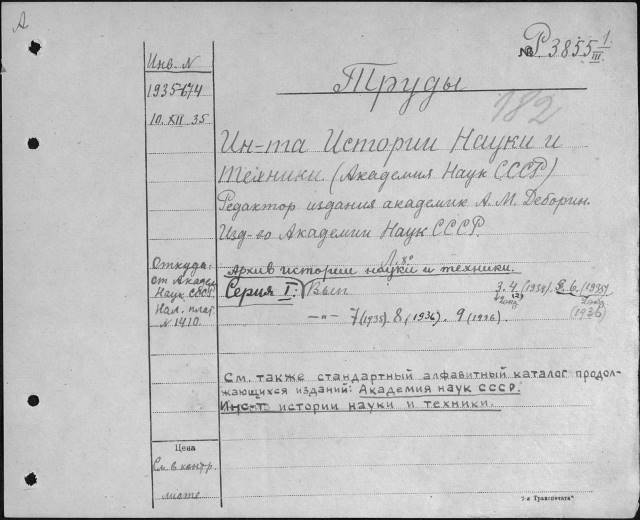 А
Инв. N
№ Р 3855 1/III
1935-674
Труды
10.XII 35
182
Ин-та Истории Науки и
Техники. (Академия Наук СССР)
Редактор издания академик А. М. Деборин.
Изд-во Академии Наук СССР.
Л. 8°
Откуда:
от Академ
Наук СССР
Нал. плат.
N 1410.
Архив истории науки и техники.
Серия I: Вып 3. 4 (1934). 5. 6. (1935)
2 экз (2) 2 экз
(1936)
-"- 7 (1935). 8 (1936). 9 (1936).
См. также стандартный алфавитный каталог продол-
жающихся изданий: Академия наук СССР.
Инс-т. истории науки и техники.
Цена
См. в контр.
листе
7-я Транспечать